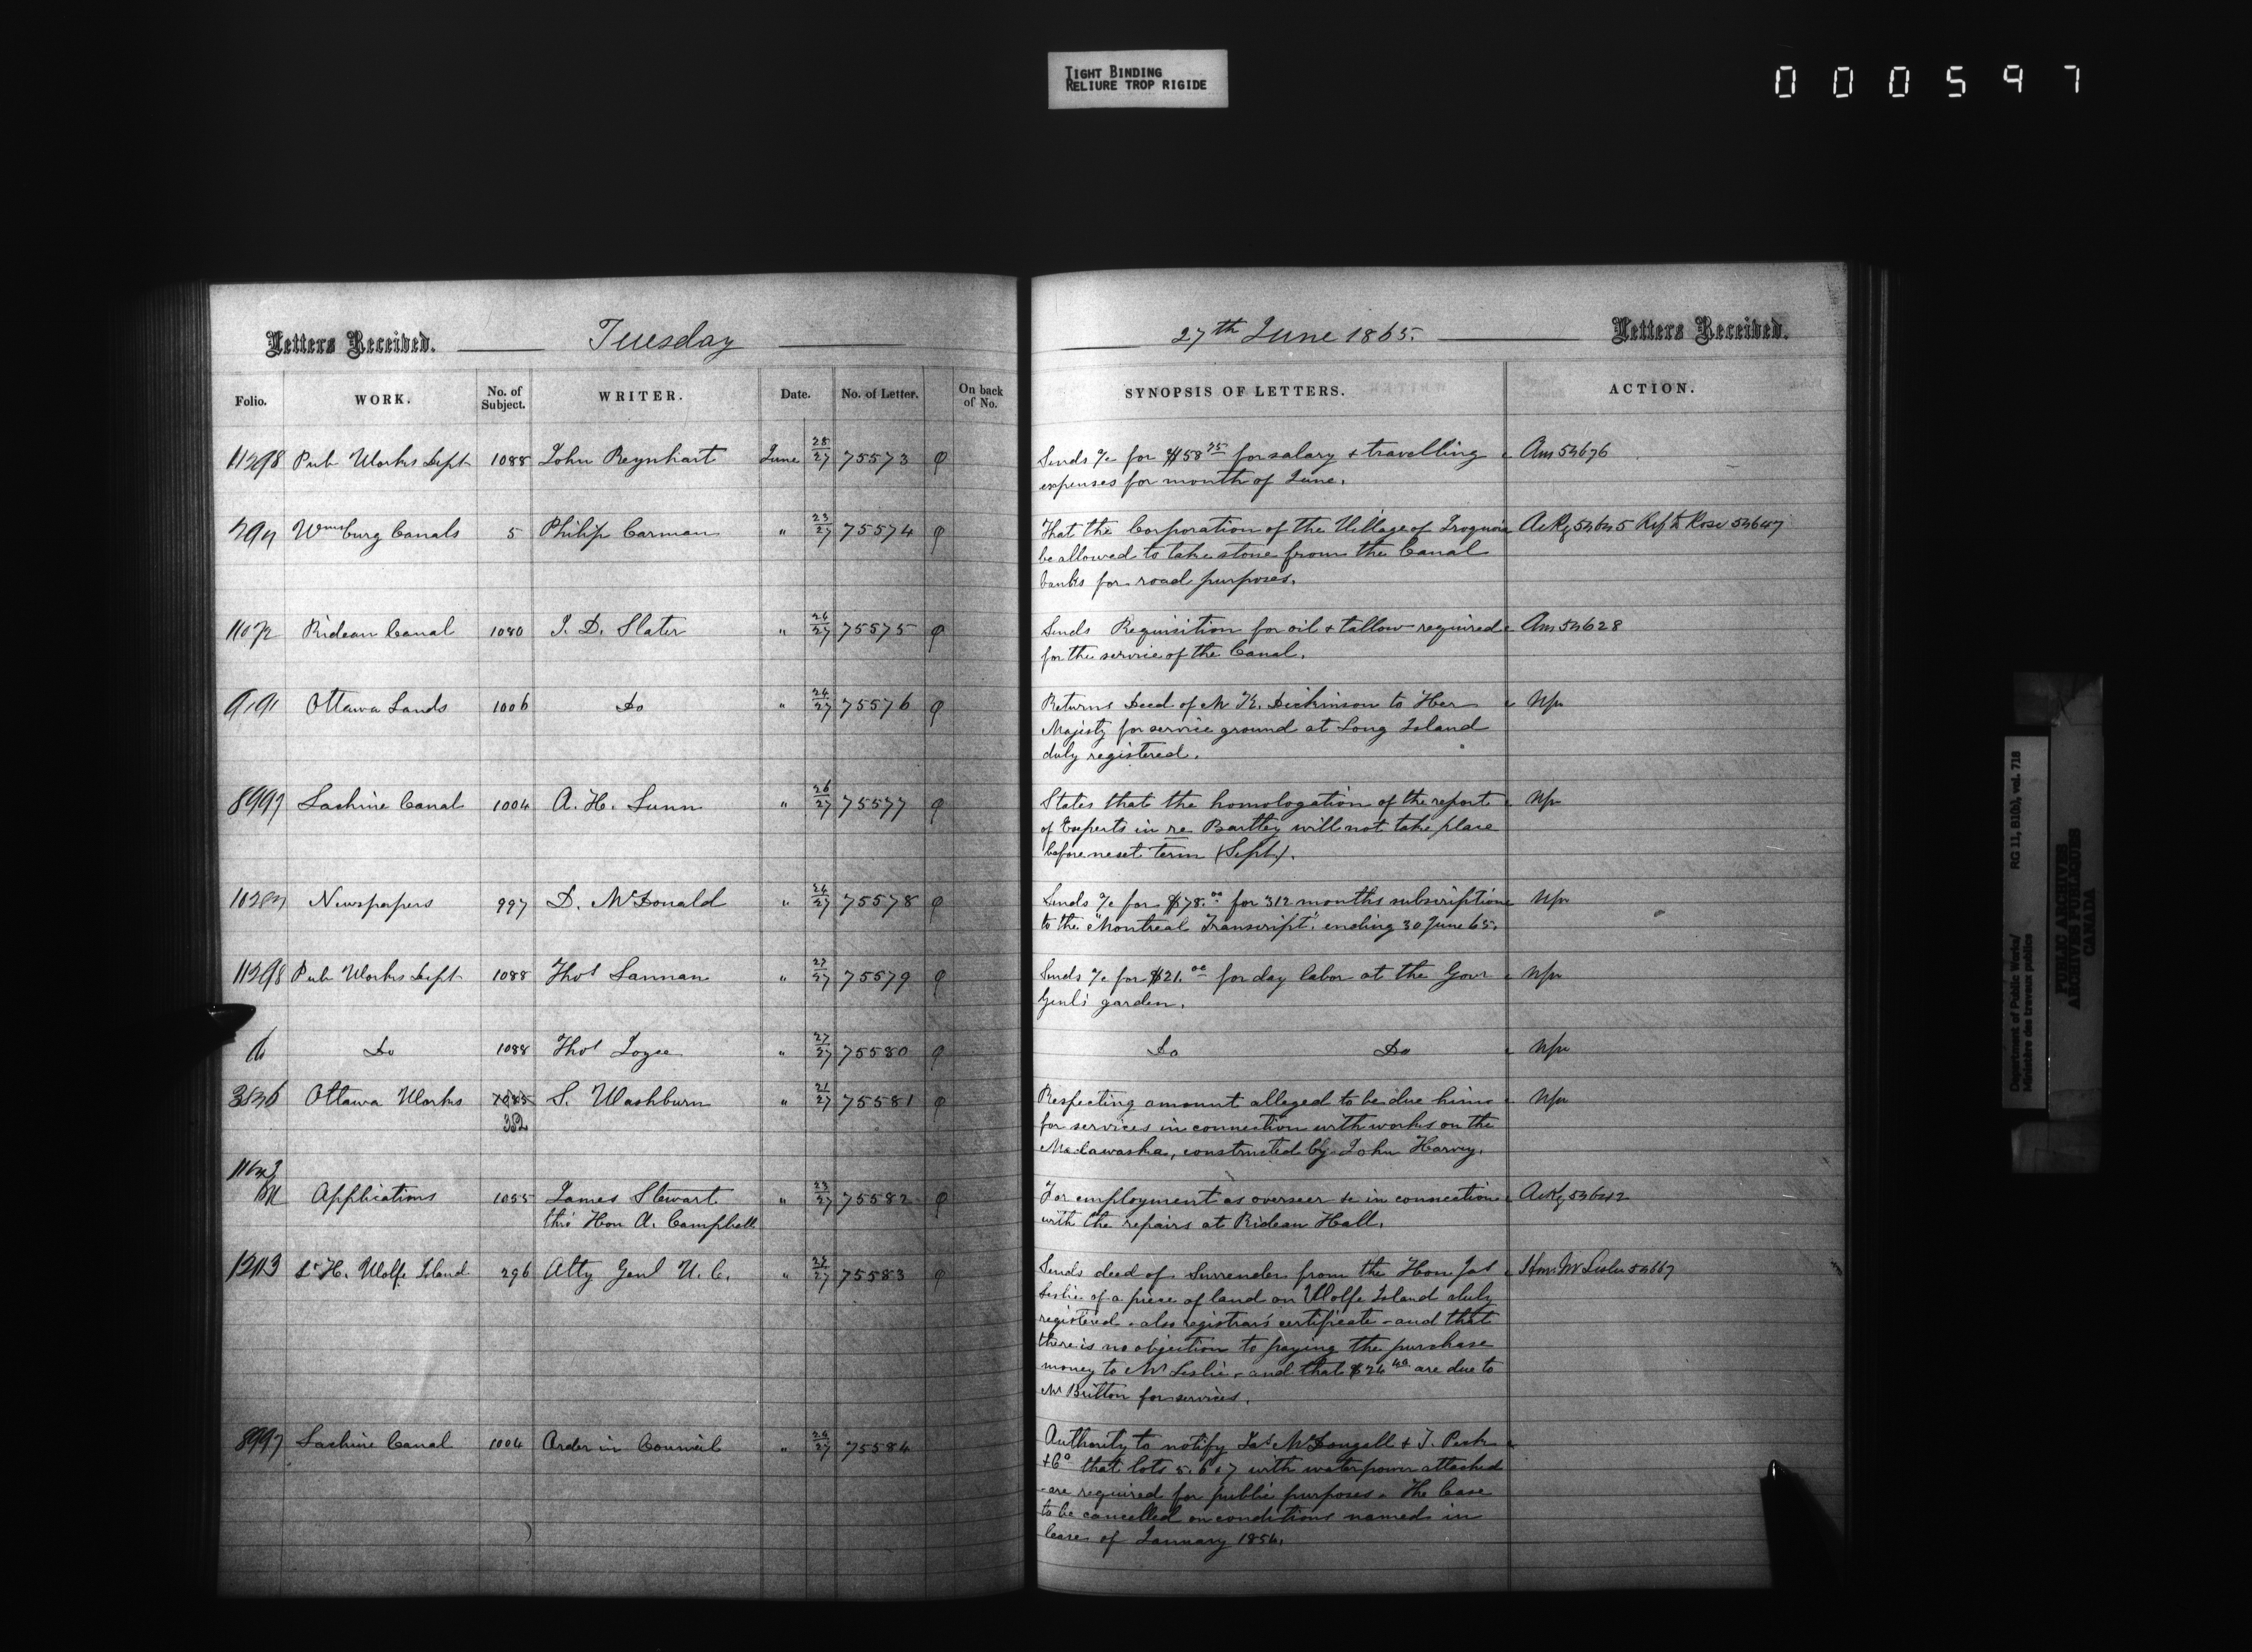 TIGHT BINDING
RELIURE TROP RIGIDE
000597
Letters Received. Tuesday
27th June 1865. Letters Received.
Folio. WORK. No. of Subject. WRITER. Date. No. of Letter. On back of No.
SYNOPSIS OF LETTERS. ACTION.
11298 Pub Works Dept 1088 John Reynhart June 28/27 75573
Sends a/c for $58 25 for salary & travelling Ans 54676
expenses for month of June.
Wmsburg Canals 5 Philip Carman " 23/27 75574
That the Corporation of the Village of Iroquois Ackg 54645 Ref to Rose 54647
be allowed to take stone from the Canal
banks for road purposes.
Rideau Canal 1080 J. D. Slater " 26/27 75575
Sends Requisition for oil & tallow required Ans 54628
for the service of the Canal.
9191 Ottawa Lands 1006 Do " 26/27 75576
Returns Deed of M K. Dickinson to Her
Majesty for service ground at Long Island
duly registered.
8997 Lachine Canal 1004 A. H. Lunn " 26/27 75577
States that the homologation of the report
of Experts in re Bartley will not take place
before next term (Sept).
Newspapers 997 D. McDonald " 26/27 75578
Sends a/c for $78.00 for 312 months subscription
to the "Montreal Transcript" ending 30 June 65.
11298 Pub Works Dept 1088 Thos Lannan " 27/27 75579
Sends a/c for $21.00 for day labor at the Govr
Genl's garden.
Do Do 1088 Thos " 27/27 75580
Do Do
Ottawa Works 1085 352 S. Washburn " 21/27 75581
Respecting amount alleged to be due him
for services in connection with works on the
Madawaska, constructed by John Harvey.
Applications 1055 James Stewart " 23/27 75582
thro' Hon A. Campbell
For employment as overseer &c in connection Ackg 54642
with the repairs at Rideau Hall.
Lt H. Wolfe Island 296 Atty Genl U. C. " 25/27 75583
Sends deed of Surrender from the Hon Jas Hon Mr Leslie 54667
Leslie of a piece of land on Wolfe Island duly
registered - also registrar's certificate - and that
there is no objection to paying the purchase
money to Mr Leslie - and that $24 40 are due to
Mr Britton for services.
8997 Lachine Canal 1004 Order in Council " 26/27 75584
Authority to notify Jas McDougall & J. Peck
& Co that lots 5. 6 & 7 with waterpower attached
are required for public purposes. The lease
to be cancelled on conditions named in
lease of January 1854.
Department of Public Works/ RG 11, B1(b), vol. 718
Ministère des travaux publics
PUBLIC ARCHIVES
ARCHIVES PUBLIQUES
CANADA